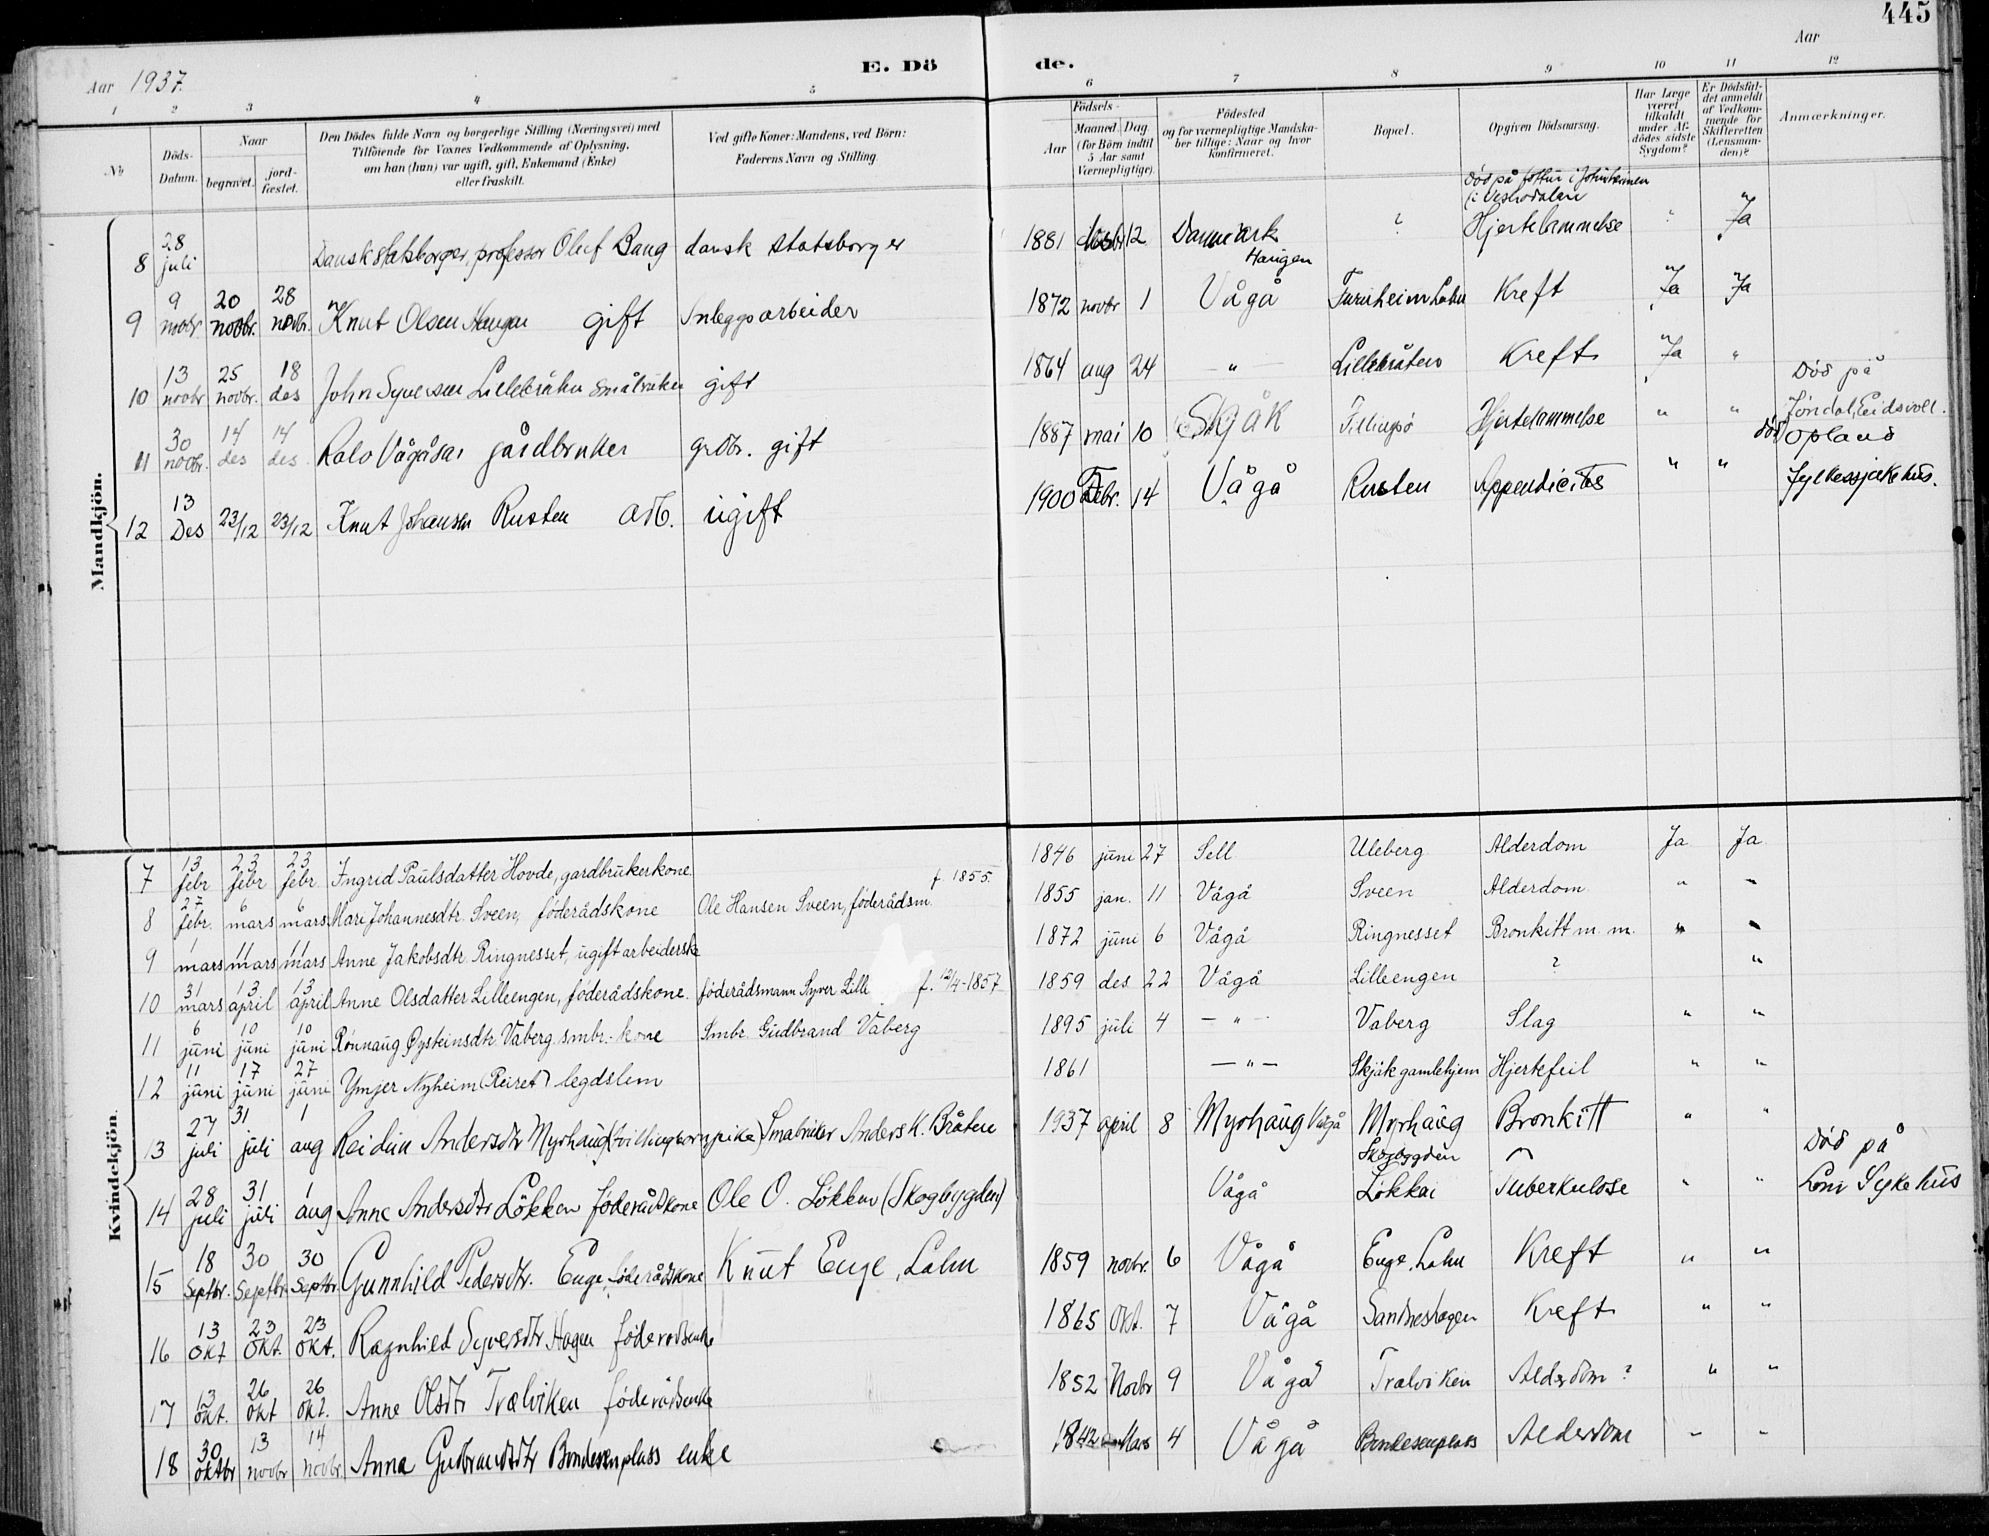 445
Aar 1937.
E. Dö
de.
Aar
1 2 3 4 5
6 7 8 9 10 11 12
No
Döds-Datum.
Naar
begravet.
jord-fæstet.
Den Dödes fulde Navn og borgerlige Stilling (Næringsvei) med
Tilföiende for Voxnes Vedkommende af Oplysning,
om han (hun) var ugift, gift, Enkemand (Enke)
eller fraskilt.
Ved gifte Koner: Mandens, ved Börn:
Faderens Navn og Stilling.
Födsels-
Aar
Maaned Dag
(for Börn indtil
5 Aar samt
Værnepligtige)
Födested
og for værnepligtige Mandska-
ber tillige: Naar og hvor
konfirmeret.
Bopæl.
Opgiven Dödsaarsag.
Har Læge
været
tilkaldt
under Af-
dödes sidste
Sygdom?
Er Dödsfal-
det anmeldt
af Vedkom-
mende for
Skifteretten
(Lensman-
den)?
Anmærkninger.
Mandkjön.
8 28 juli Dansk statsborger, professor Oluf Bang dansk statsborger 1881 12 Danmark ? død på fottur i Jotunheimen Hjertelammelse Ja
9 9 novbr. 20 novbr. 28 novbr. Knut Olsen Haugen gift Anleggsarbeider 1872 novbr 1 Haugen Vågå Furuheim Lalm Kreft Ja Ja
10 13 novbr 25 novbr. 18 des John Syversen Lillebråten småbruker gift 1864 aug 24 — " — Lillebråten Kreft Ja "
11 30 novbr. 14 des 14 des Vågåsar gårdbruker grdbr. gift 1887 mai 10 Skjåk Hjertelammelse " " Død på Jøndal, Eidsvoll.
12 13 Des 23/12 23/12 Knut Johansen Rusten arb. ugift 1900 Febr. 14 Vågå Rusten Appendicites " " død Opland Fylkessjukehus.
Kvindekjön.
7 13 febr 23 febr 23 febr. Ingrid Paulsdatter Hovde, gardbrukerkone. 1846 juni 27 Sell Uleberg Alderdom Ja Ja
8 27 febr. 6 mars 6 mars Mari Johannesdtr. Sveen, föderådskone Ole Hansen Sveen, föderådsm. f. 1855. 1855 jan. 11 Vågå Sveen Alderdom " "
9 1 mars 11 mars 11 mars Anne Jakobsdtr. Ringnesset, ugift arbeiderske 1872 juni 6 Vågå Ringnesset Bronkitt m. m. " "
10 31 mars 13 april 13 april Anne Olsdatter Lilleengen, föderådskone. föderådsmann Syver Lille f. 12/4-1857 1859 des 22 Vågå Lilleengen ? "
11 6 juni 10 juni 10 juni Rönnaug Øysteinsdtr Vaberg smbr.-kone Smbr. Gudbrand Vaberg 1895 juli 4 — " — Vaberg Slag " "
12 11 juni 17 juni 27 juni Ymjer Nyheim (Reiret) legdslem 1861 — " — Skjåk gamlehjem Hjertefeil " "
13 27 juli 31 juli 1 aug Reidun Andersdtr Myrhaug (tvillingbarn pike) Småbruker Anders K. Bråten 1937 april 8 Myrhaug Vågå Myrhaug Bronkitt " "
14 28 juli 31 juli 1 aug Anne Andersdtr Løkken föderådskone Ole O. Løkken (Skogbygden) Vågå Skogbygden Løkkai Tuberkulose " " Död på Lom Sykehus
15 18 Septbr. 30 Septbr. 30 Septbr. Gunnhild Pedersdtr. Enge, föderådskone Knut Enge, Lalm 1859 novbr. 6 Vågå Enge, Lalm Kreft " "
16 13 Okt 23 Okt. 23 Okt. Ragnhild Syversdtr Hagen föderådsenke 1865 Okt. 7 Vågå Sandneshagen Kreft " "
17 13 Okt. 26 Okt 26 Okt. Anne Olsdtr Trælviken föderådsenke 1852 Novbr 9 Vågå Trælviken Alderdom ? " "
18 30 oktbr 13 novbr 14 novbr Anna Gudbrandsdtr Bondesenplass enke 1842 Mars 4 Vågå Bondesenplass Alderdom " "